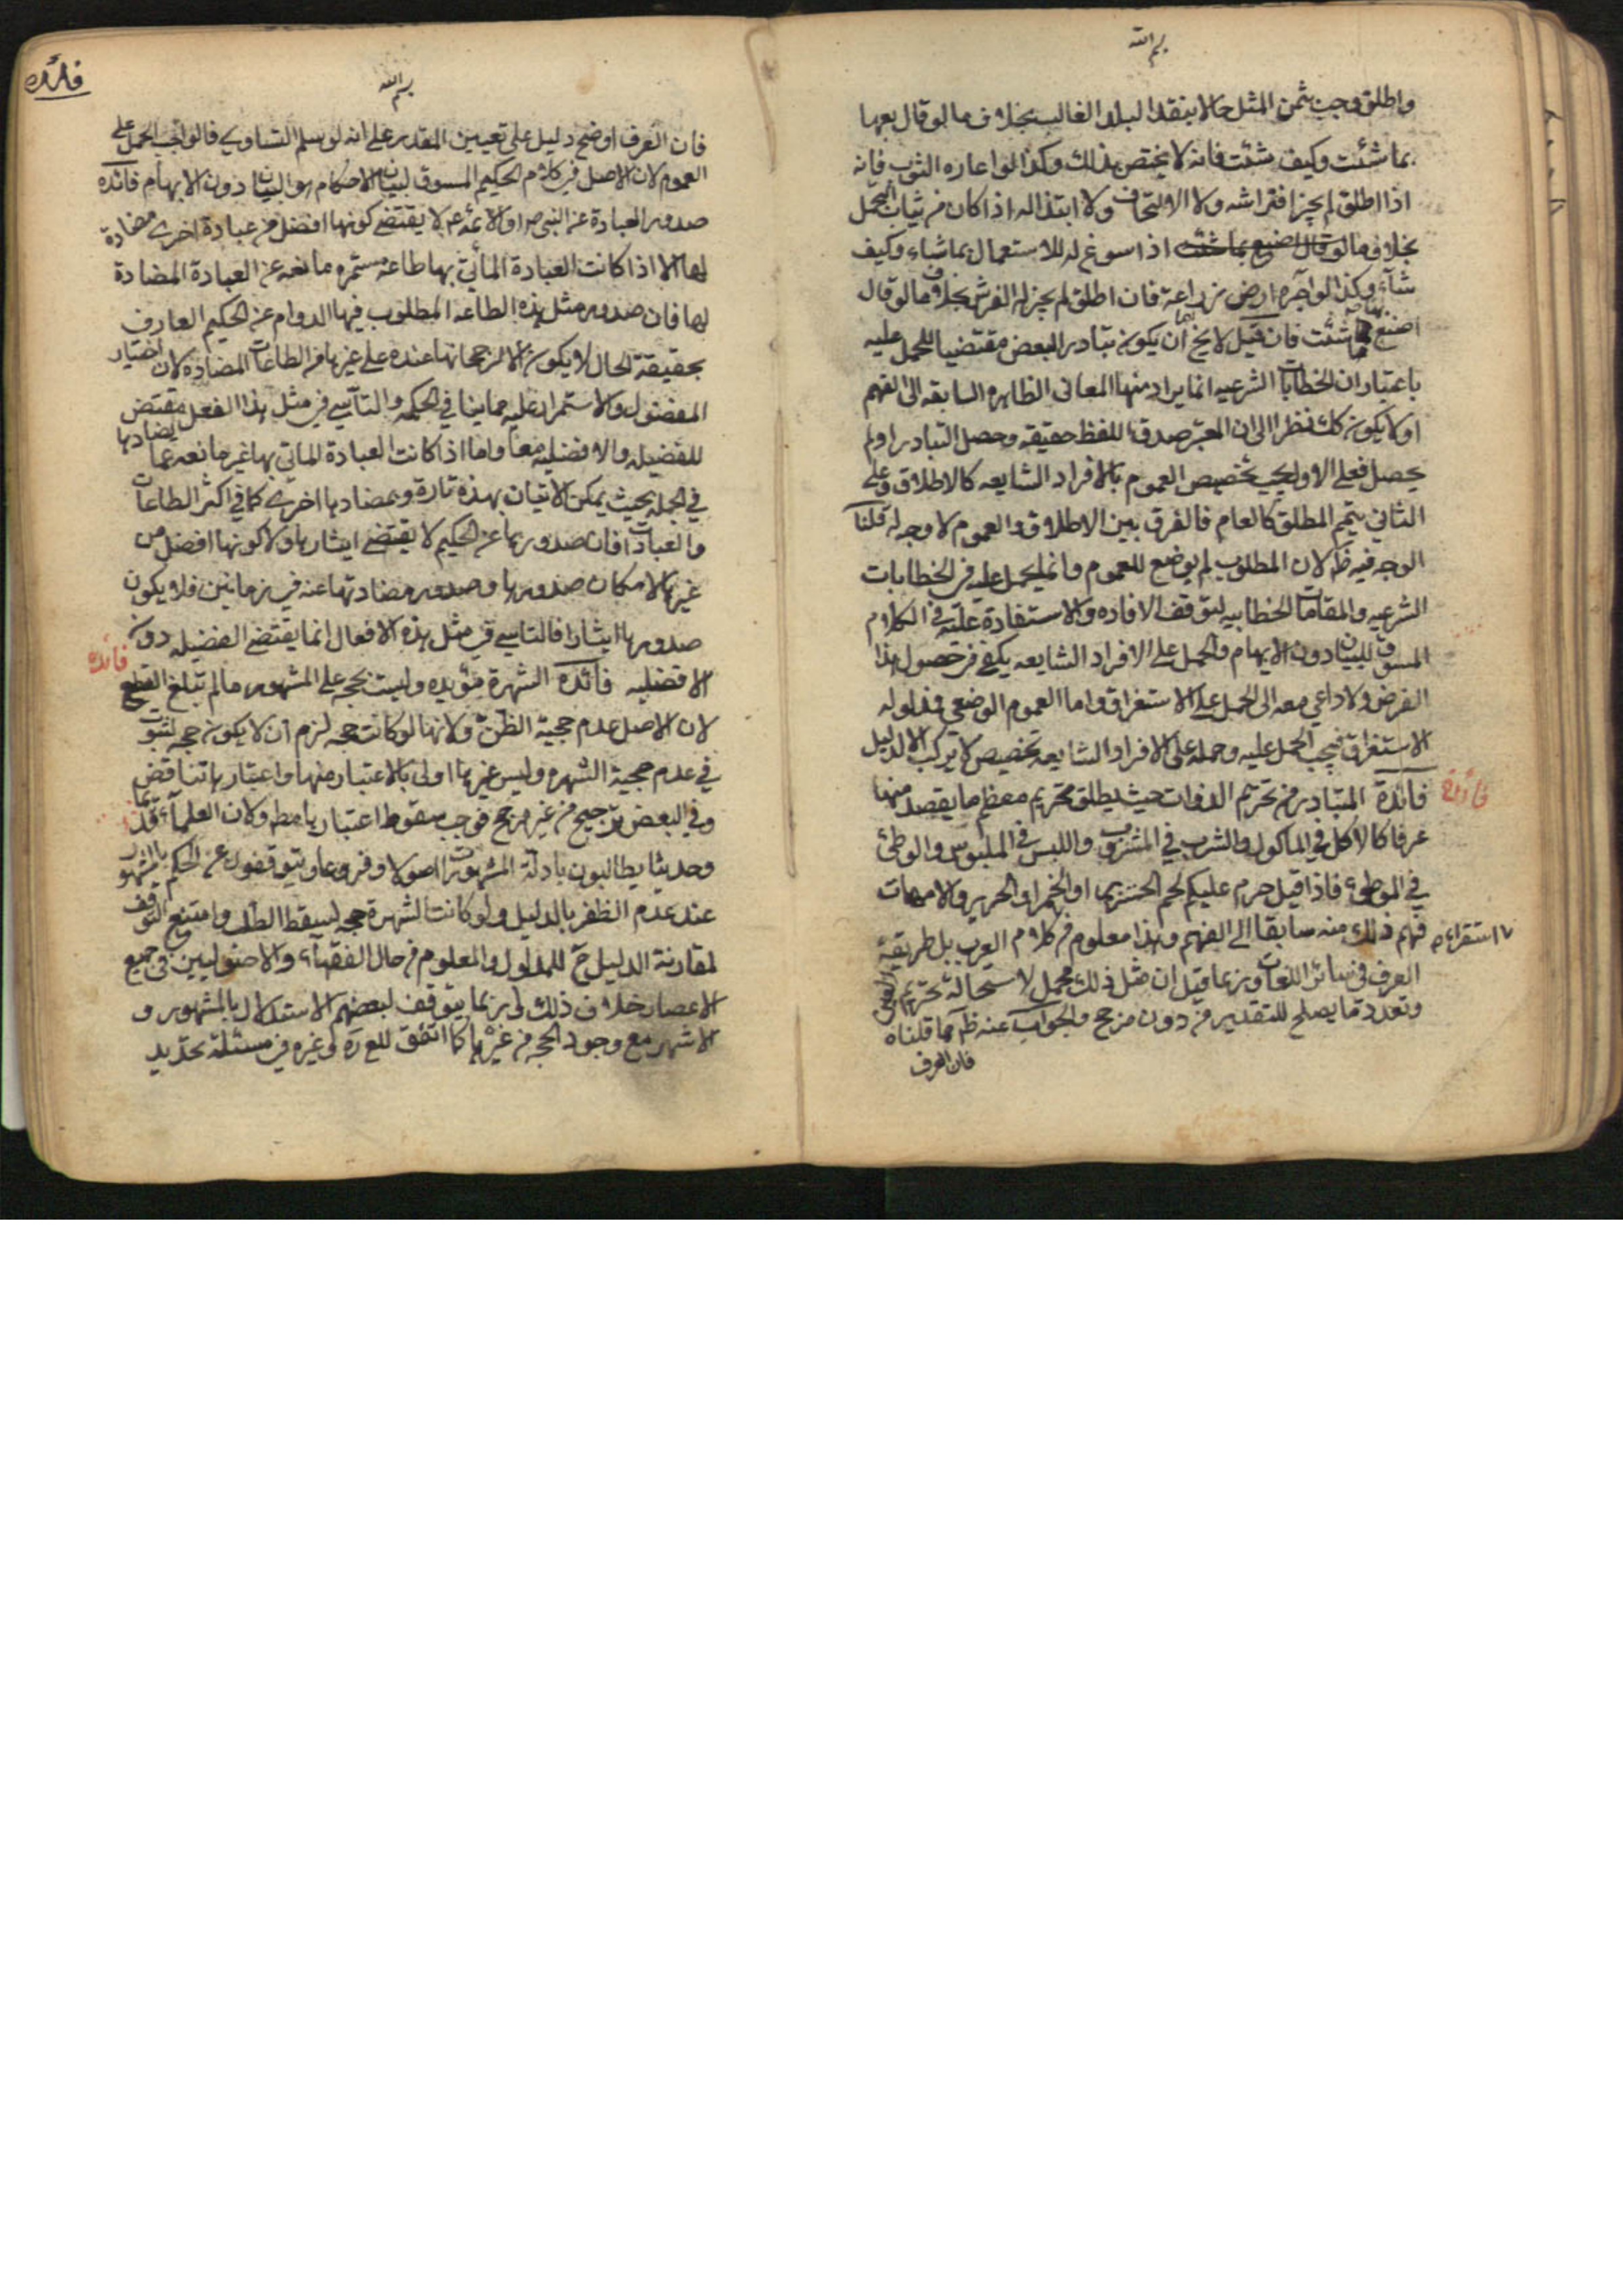 بسم الله
واطلق وجب ثمن المثل حالا بنقد البلد الغالب بخلاف ما لو قال بعها
بما شئت وكيف شئت فانه لا يختص بذلك وكذا لو اعاره الثوب فانه
اذا اطلق لم يجز افتراشه ولا الالتحاف ولا ابتذاله اذا كان من ثياب التجمل
بخلاف ما لو قال اصنع بما شئت اذا سوغ له الاستعمال بما شاء وكيف
شاء وكذا لو آجره ارض زراعة فان اطلق لم يجز له الغرس بخلاف ما لو قال
اصنع بها ما شئت فان قيل لا يخ اما ان يكون تبادر البعض مقتضيا للحمل عليه
باعتبار ان الخطابات الشرعيه انما يراد منها المعانى الظاهره السابقه الى الفهم
او لا يكون كك نظرا الى ان المعتبر صدق اللفظ حقيقه وحصل التبادر او لم
يحصل فعلى الاول يجب تخصيص العموم بالافراد الشايعه كالاطلاق وعلى
الثانى يتمم المطلق كالعام فالفرق بين الاطلاق والعموم لا وجه له قلنا
الوجه فيه ظ لان المطلوب لم يوضع للعموم وانما يحمل عليه فى الخطابات
الشرعيه والمقامات الخطابيه لتوقف الافاده والاستفادة عليه فى الكلام
المسوق للبيان دون الايهام والحمل على الافراد الشايعه يكفى فى حصول هذا
الغرض ولا داعى معه الى الحمل على الاستغراق واما العموم الوضعى فمدلوله
الاستغراق فيجب الحمل عليه وحمله على الافراد الشايعه تخصيص لا يرتكب الا لدليل
فائدة
فائدة المتبادر من تحريم الذوات حيث يطلق تحريم معظم ما يقصد منها
عرفا كالاكل فى الماكول والشرب فى المشروب واللبس فى الملبوس والوطئ
فى الموطوء فاذا قيل حرم عليكم لحم الخنزير او الخمر او الحرير والامهات
فهم ذلك منه سابقا الى الفهم وهذا معلوم من كلام العرب بل طريقة
استقراء
العرف فى سائر اللغات وربما قيل ان مثل ذلك مجمل لاستحالة تحريم العين
وتعدد ما يصلح للتقدير من دون مرجح والجواب عنه ظ مما قلناه
فان العرف
فائده
بسم الله
فان العرف اوضح دليل على تعيين المقدر على انه لو سلم التساوى فالواجب الحمل على
العموم لان الاصل فى كلام الحكيم المسوق لبيان الاحكام هو البيان دون الابهام فائده
صدور العبادة عن النبى ص او الائمه ع لا يقتضى كونها افضل من عبادة اخرى مضادة
لها الا اذا كانت العبادة المأتى بها طاعة مستمره مانعه عن العبادة المضادة
لها فان صدور مثل هذه الطاعه المطلوب فيها الدوام عن الحكيم العارف
بحقيقة الحال لا يكون الا لرجحانها عنده على غيرها من الطاعات المضادة لان اختيار
المفضول والاستمرار عليه مما ينافى الحكمه والتأسى فى مثل هذا الفعل مقتض
للفضيله والافضليه معا واما اذا كانت العبادة الماتى بها غير مانعه عما يضادها
فى الجمله بحيث يمكن الاتيان بهذه تارة وبمضادها اخرى كما فى اكثر الطاعات
والعبادات فان صدورها عن الحكيم لا يقتضى ايثارها ولا كونها افضل من
غيرها لامكان صدورها وصدور مضادتها عنه فى زمانين فلا يكون
صدورها ايثارا فالتاسى فى مثل هذه الافعال انما يقتضى الفضيله دون
فائده
الافضليه فائدة الشهرة مؤيده وليست بحجه على المشهور ما لم تبلغ القطع
لان الاصل عدم حجية الظن ولانها لو كانت حجه لزم ان لا يكون حجه لثبوت
فى عدم حجية الشهره وليس غيرها اولى بالاعتبار منها واعتبارها تناقض
وفى البعض ترجيح من غير مرجح فوجب سقوط اعتبارها مطه وكان العلماء قديما
وحديثا يطالبون بادلة المشهورات اصولا وفروعا ويتوقفون عن الحكم بالمشهور
عند عدم الظفر بالدليل ولو كانت الشهرة حجه لسقط الطلب وامتنع التوقف
لمقارنة الدليل ح للمدلول والمعلوم من حال الفقهاء والاصوليين فى جميع
الاعصار خلاف ذلك بل ربما يتوقف لبعضهم الاستدلال بالمشهور و
الاشهر مع وجود الحجه من غيرها كما اتفق للعلامة وغيره فى مسئلة تحديد